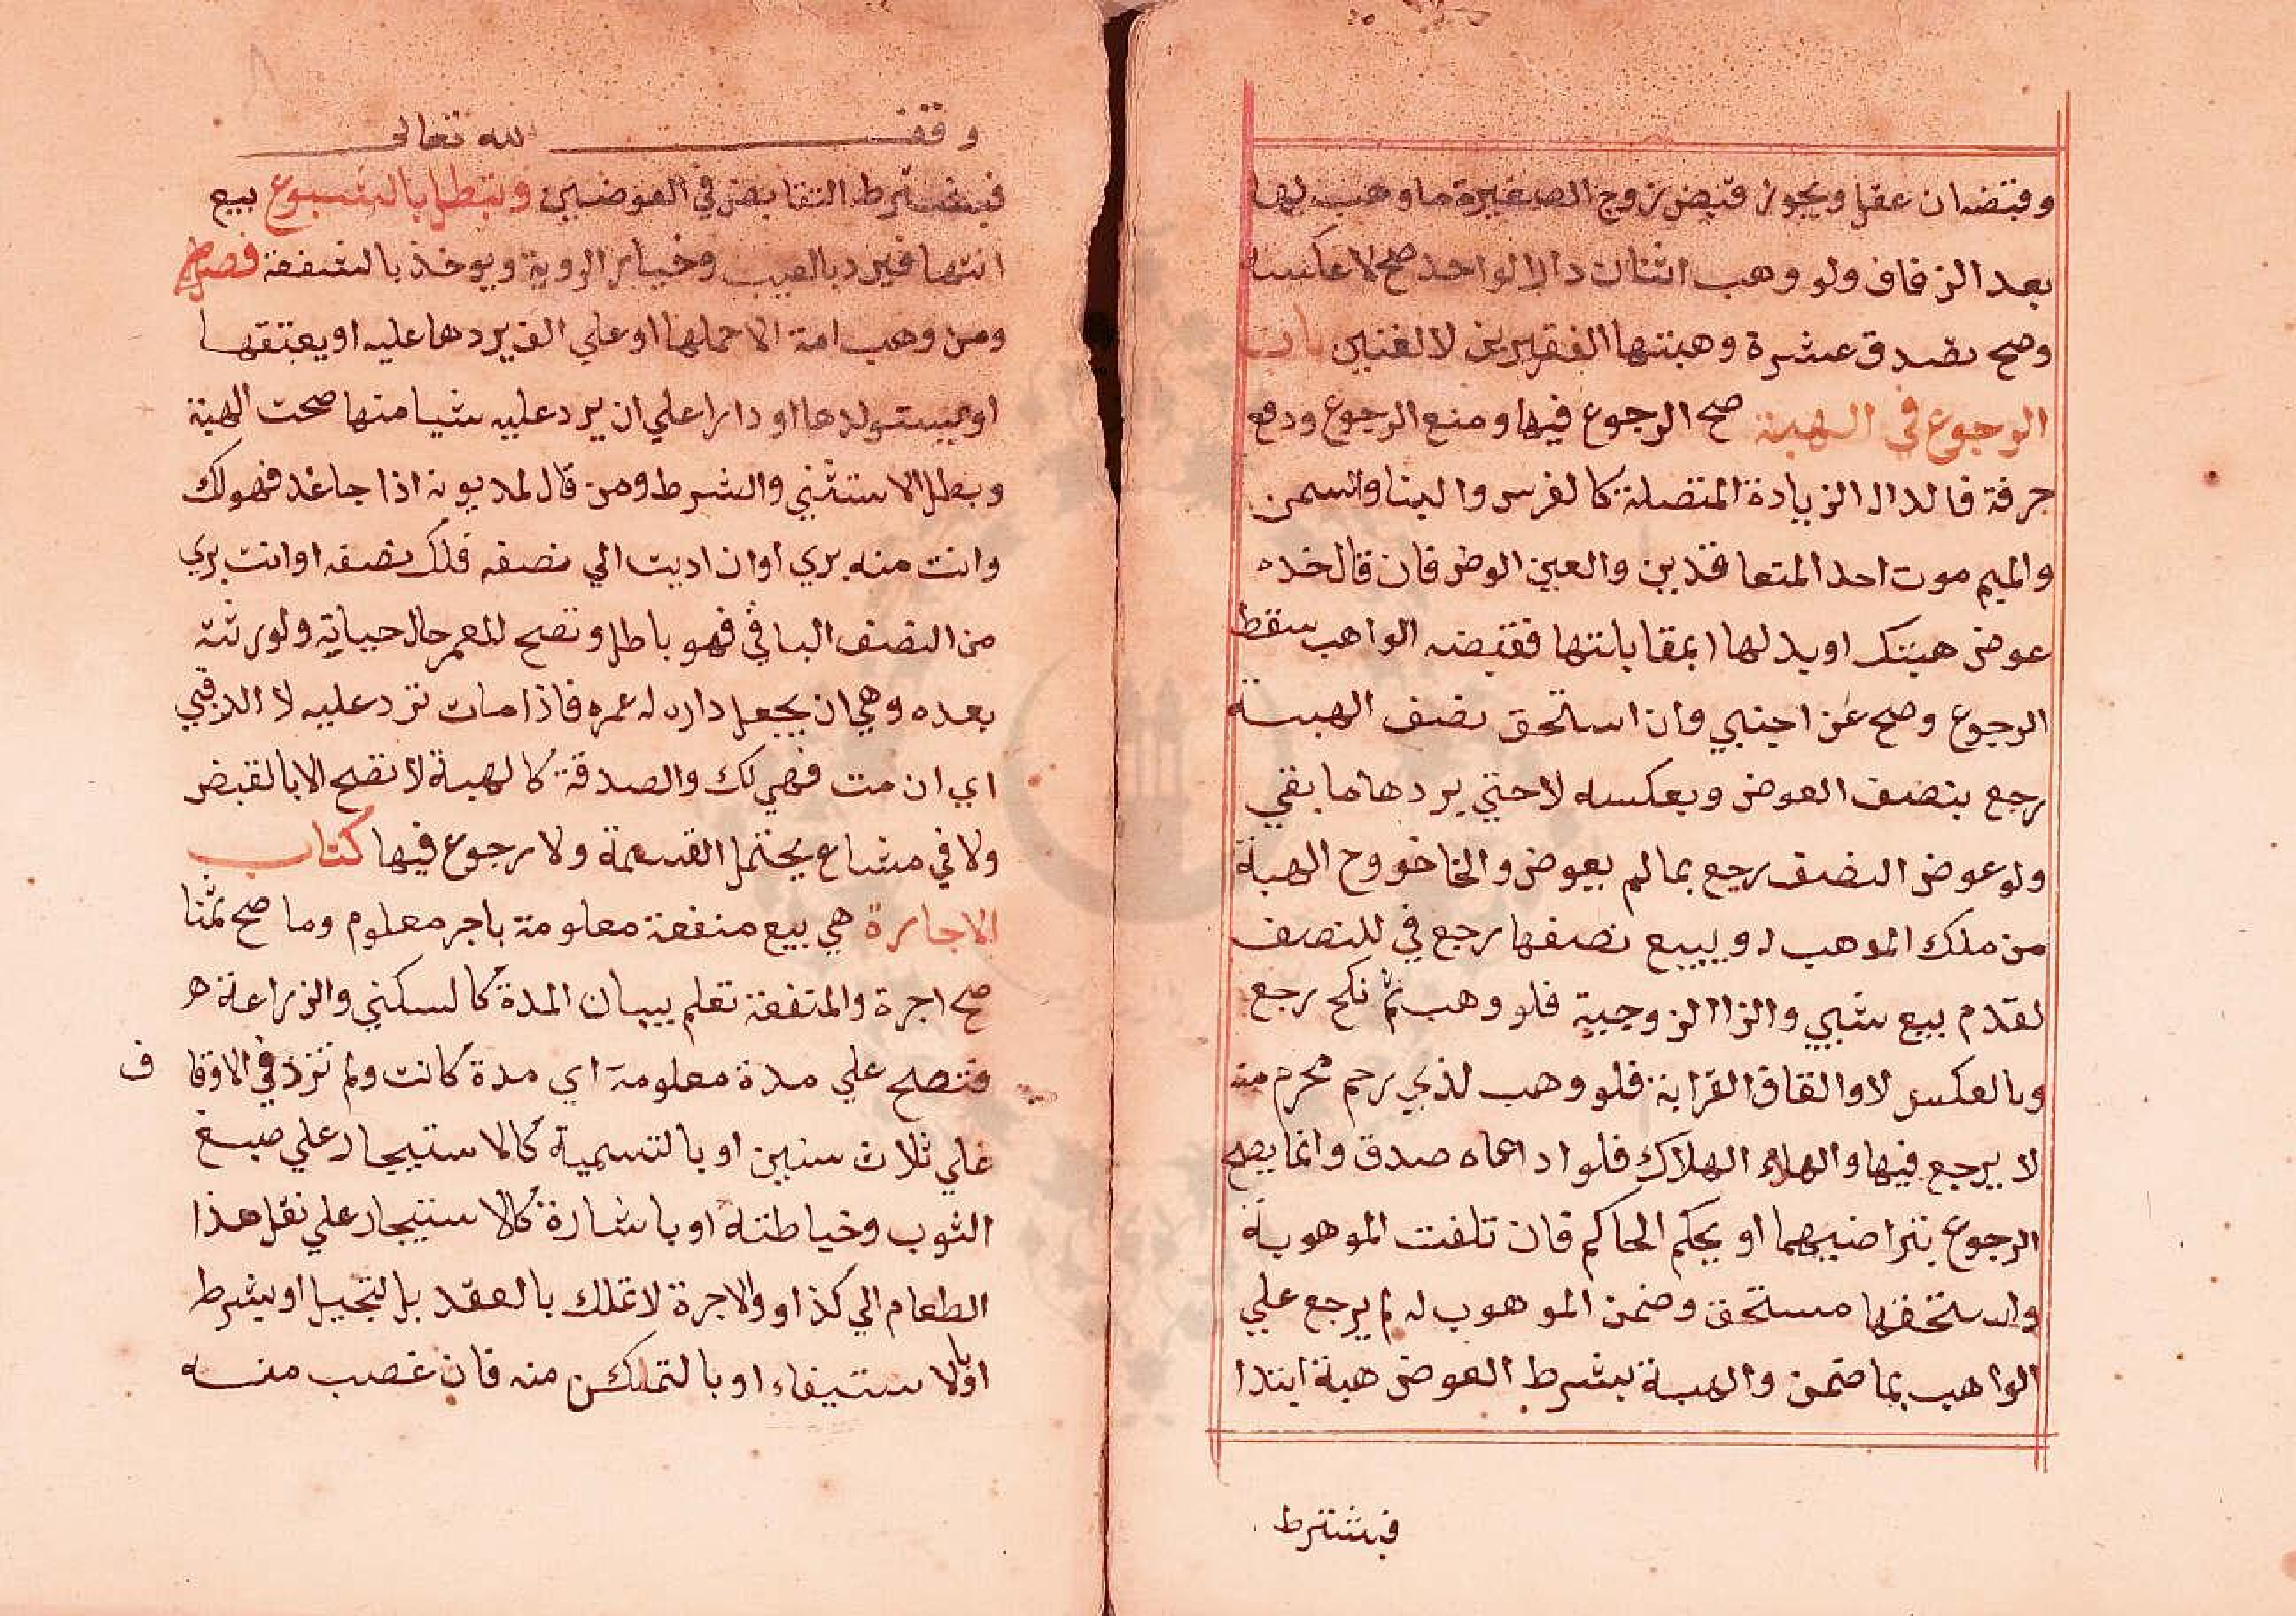 وقبضه ان عقل ويجوز قبض زوج الصغيرة ما وهب لها
بعد الزفاف ولو وهب اثنان دارا لواحد صح لا عكسه
وصح تصدق عشرة وهبتها الفقيرين لا لغنيين باب
الرجوع في الهبة صح الرجوع فيها ومنع الرجوع ودمع
خزقة فالدال الزيادة المتصلة كالغرس والبنا والسمن
والميم موت احد المتعاقدين والعين الوض فان قال خذه
عوض هبتك او بدلها ا بمقابلتها فقبضه الواهب سقط
الرجوع وصح عن اجنبي وان استحق نصف الهبة
رجع بنصف العوض وبعكسه لا حتي يرد ها ما بقي
ولو عوض النصف رجع بما لم يعوض والخا خروح الهبة
من ملك الموهب له وببيع نصفها رجع في للنصف
لقدم بيع شيي والزا الزوجية فلو وهب ثم نكح رجع
وبالعكس لا والقاق القرابة فلو وهب لذي رحم محرم منه
لا يرجع فيها والهاء الهلاك فلو ادعاه صدق وانما يصح
الرجوع بتراضيهما او بحكم الحاكم فان تلفت الموهوبة
واستحقها مستحق وضمن الموهوب له لم يرجع علي
الواهب بما ضمن والهبة بشرط العوض هبة ابتدا
فيشترط
وقف لله تعالى
فيشترط التقابض في العوضين وتبطل بالشيوع بيع
انتها فيرد بالعيب وخيار الروية ويوخذ بالشفعة فصل
ومن وهب امة الا حملها او علي ان يردها عليه او يعتقها
او يستولدها او دارا علي ان يرد عليه شيا منها صحت الهبة
وبطل الاستثني والشرط ومن قال لمديونه اذا جا غد فهو لك
وانت منه بري او ان اديت الي نصفه فلك نصفه او انت بري
من النصف الباقي فهو باطل وتصح للمعمر حال حياته ولورثته
بعده وهي ان يجعل داره له عمره فاذا مات ترد عليه لا الرقبي
اي ان مت فهي لك والصدقة كالهبة لا تصح الا بالقبض
ولا في مشاع يحتمل القسمة ولا رجوع فيها كتاب
الاجارة هي بيع منفعة معلومة باجر معلوم وما صح ثمنا
صح اجرة والمنفعة تعلم ببيان المدة كالسكني والزراعة ه
فتصح علي مدة معلومة اي مدة كانت ولم تزد في الاوقا ف
علي ثلاث سنين او بالتسمية كالاستيجار علي صبغ
الثوب وخياطته او باشارة كالاستيجار علي نقل هذا
الطعام الي كذا او والاجرة لا تملك بالعقد بل بالتجيل او بشرط
او بالاستيفاء او بالتملكن منه فان غصب منه